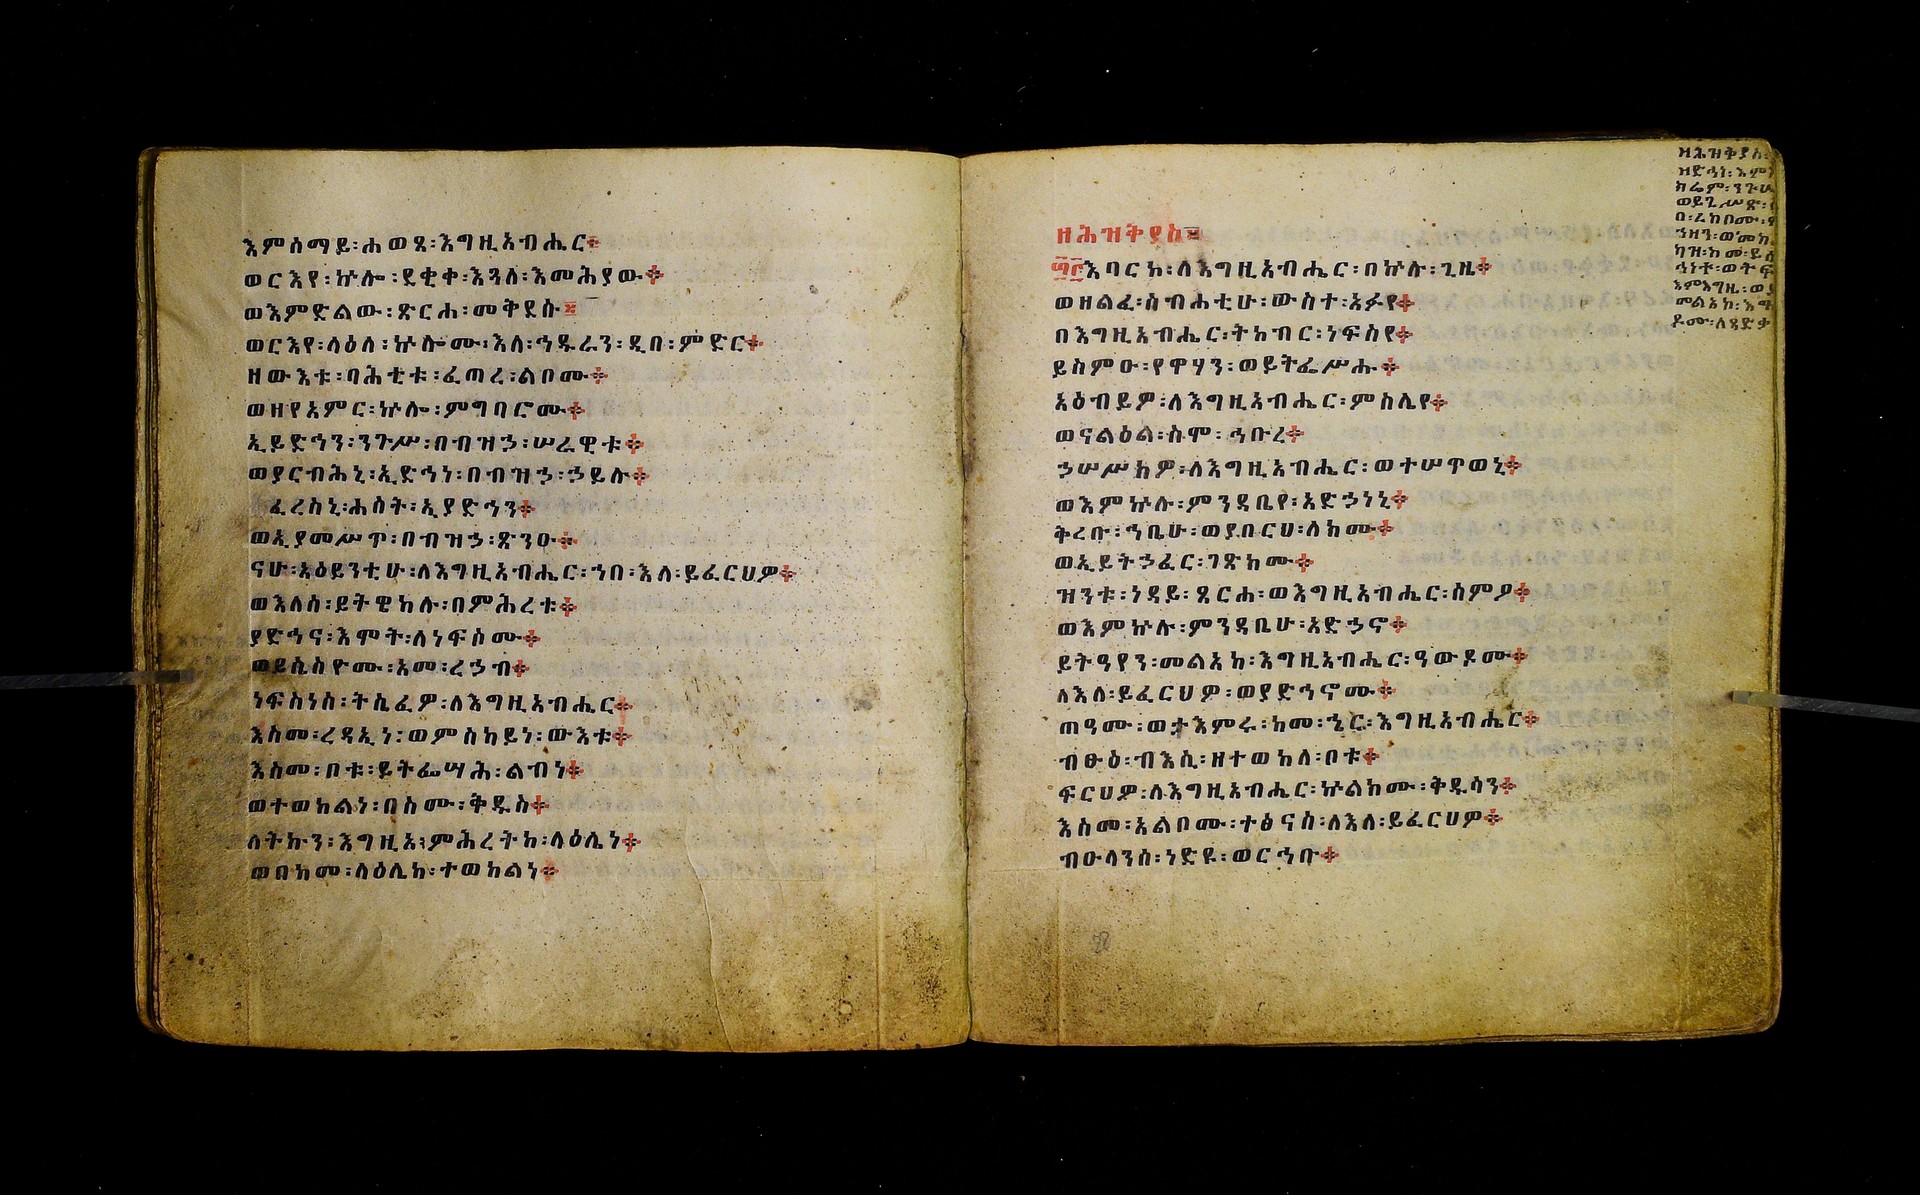 እምሰማይ፡ሐወጸ፡እግዚአብሔር።
ወርእየ፡ኵሎ፡ደቂቀ፡እጓለ፡እመሕያው።
ወእምድልው፡ጽርሐ፡መቅደሱ።
ወርእየ፡ላዕለ፡ኵሎሙ፡እለ፡ኅዱራን፡ዲበ፡ምድር።
ዘውእቱ፡ባሕቲቱ፡ፈጠረ፡ልቦሙ።
ወዘየአምር፡ኵሎ፡ምግባሮሙ።
ኢይድኅን፡ንጉሥ፡በብዝኃ፡ሠራዊቱ።
ወያርብሕኒ፡ኢድኅነ፡በብዝኃ፡ኃይሉ።
ፈረስኒ፡ሐሰት፡ኢያድኅን።
ወኢያመሥጥ፡በብዝኃ፡ጽንዑ።
ናሁ፡አዕይንቲሁ፡ለእግዚአብሔር፡ኀበ፡እለ፡ይፈርህዎ።
ወእለሰ፡ይትዌከሉ፡በምሕረቱ።
ያድኅና፡እሞት፡ለነፍሶሙ።
ወይሴስዮሙ፡አመ፡ረኃብ።
ነፍስነሰ፡ትሴፈዎ፡ለእግዚአብሔር።
እስመ፡ረዳኢነ፡ወምስካይነ፡ውእቱ።
እስመ፡ቦቱ፡ይትፌሣሕ፡ልብነ።
ወተወከልነ፡በስሙ፡ቅዱስ።
ለትኩን፡እግዚአ፡ምሕረትከ፡ላዕሌነ።
ወበከመ፡ላዕሌከ፡ተወከልነ።
ዘሕዝቅያስ።
፴፫እባርኮ፡ለእግዚአብሔር፡በኵሉ፡ጊዜ።
ወዘልፈ፡ስብሐቲሁ፡ውስተ፡አፉየ።
በእግዚአብሔር፡ትከብር፡ነፍስየ።
ይስምዑ፡የዋሃን፡ወይትፌሥሑ።
አዕብይዎ፡ለእግዚአብሔር፡ምስሌየ።
ወናልዕል፡ስሞ፡ኅቡረ።
ኃሠሥክዎ፡ለእግዚአብሔር፡ወተሠጥወኒ።
ወእምኵሉ፡ምንዳቤየ፡አድኃነኒ።
ቅረቡ፡ኀቤሁ፡ወያበርህ፡ለክሙ።
ወኢይትኃፈር፡ገጽክሙ።
ዝንቱ፡ነዳይ፡ጸርሐ፡ወእግዚአብሔር፡ሰምዖ።
ወእምኵሉ፡ምንዳቤሁ፡አድኃኖ።
ይትዓየን፡መልአከ፡እግዚአብሔር፡ዓውዶሙ።
ለእለ፡ይፈርህዎ፡ወያድኅኖሙ።
ጠዓሙ፡ወታእምሩ፡ከመ፡ኄር፡እግዚአብሔር።
ብፁዕ፡ብእሲ፡ዘተወከለ፡ቦቱ።
ፍርህዎ፡ለእግዚአብሔር፡ኵልክሙ፡ቅዱሳን።
እስመ፡አልቦሙ፡ተፅናስ፡ለእለ፡ይፈርህዎ።
ብዑላንሰ፡ነድዩ፡ወርኅቡ።
ዘሕዝቅያስ፡